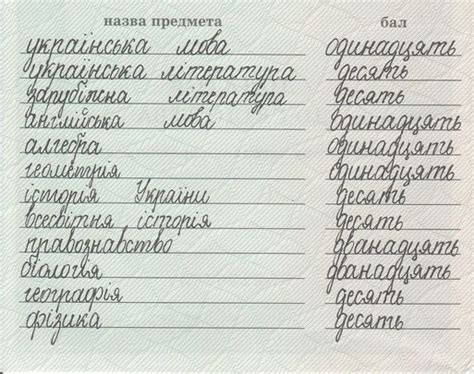 назва предмета бал
українська мова одинадцять
українська література десять
зарубіжна література десять
англійська мова одинадцять
алгебра одинадцять
геометрія одинадцять
історія України десять
всесвітня історія десять
правознавство дванадцять
біологія дванадцять
географія десять
фізика десять